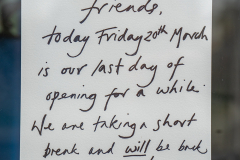 friends,
today Friday 20th March
is our last day of
opening for a while.
We are taking a short
break and will be back